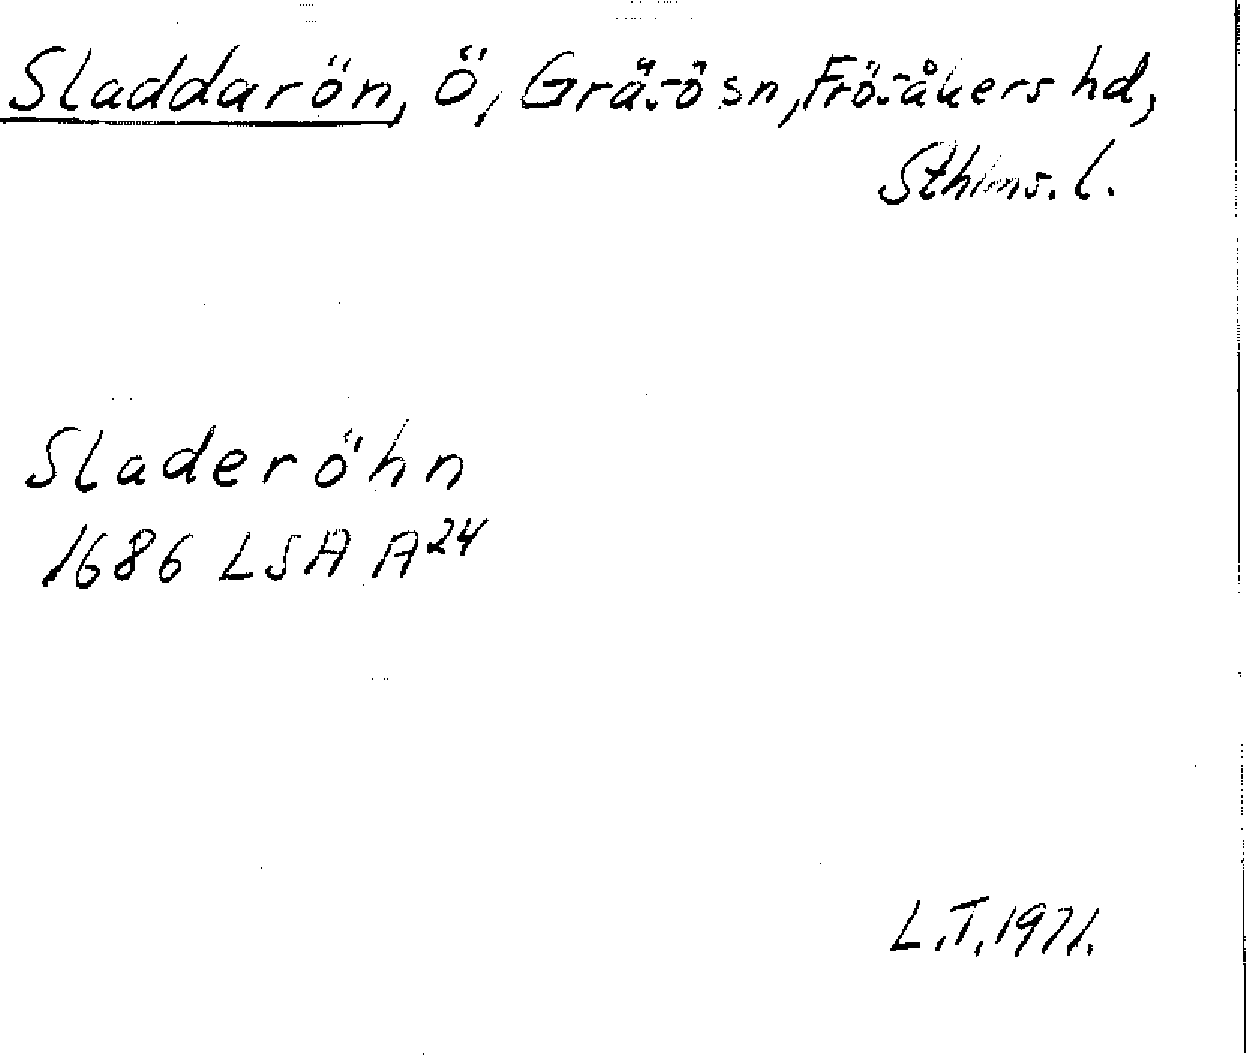 Sladdarön, Ö, Gräsö sn, Frösåkers hd,
Sthlms. l.
Sladeröhn
1686 LSA A24
L.T. 1971.